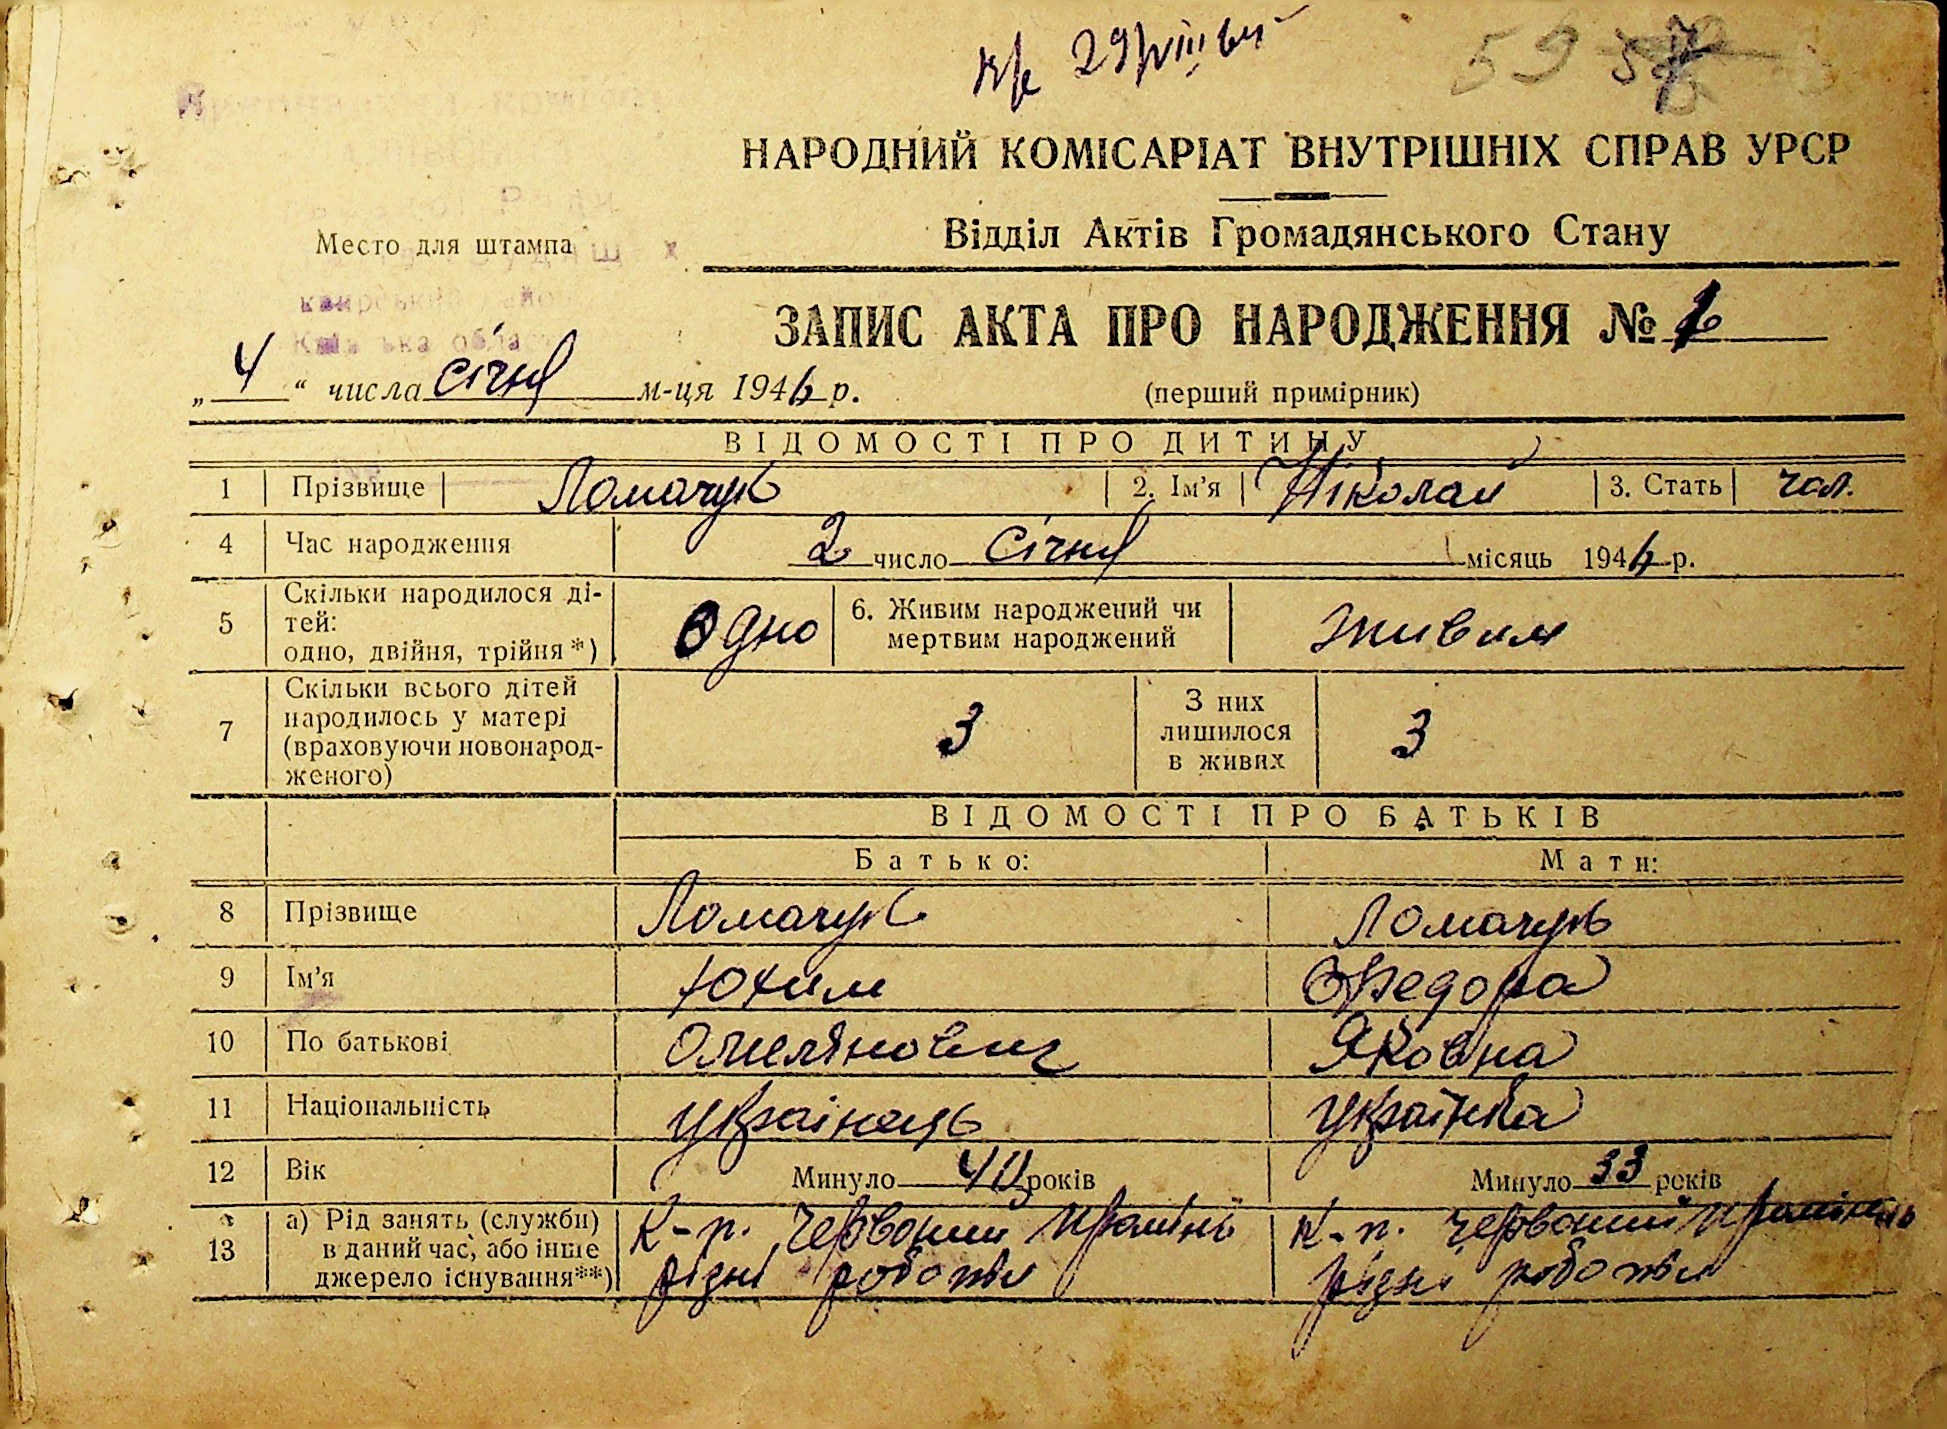 59
НАРОДНИЙ КОМІСАРІАТ ВНУТРІШНІХ СПРАВ УРСР
Відділ Актів Громадянського Стану
Место для штампа
ЗАПИС АКТА ПРО НАРОДЖЕННЯ №
„ 4 “ числа січня м-ця 1946 р.
(перший примірник)
ВІДОМОСТІ ПРО ДИТИНУ
1 Прізвище Ломачук 2. Ім'я Ніколай 3. Стать чол.
4 Час народження 2 число січня місяць 1946 р.
5 Скільки народилося ді-
тей:
одно, двійня, трійня *) Одно 6. Живим народжений чи
мертвим народжений живим
7 Скільки всього дітей
народилось у матері
(враховуючи новонарод-
женого) 3 З них
лишилося
в живих 3
ВІДОМОСТІ ПРО БАТЬКІВ
Батько: Мати:
8 Прізвище Ломачук Ломачук
9 Ім'я Юхим Федора
10 По батькові Омелянович Яковна
11 Національність українець українка
12 Вік Минуло років Минуло 33 років
13 а) Рід занять (служби)
в даний час, або інше
джерело існування**) К-п. Червоний промінь
різні роботи К-п. Червоний промінь
різні роботи